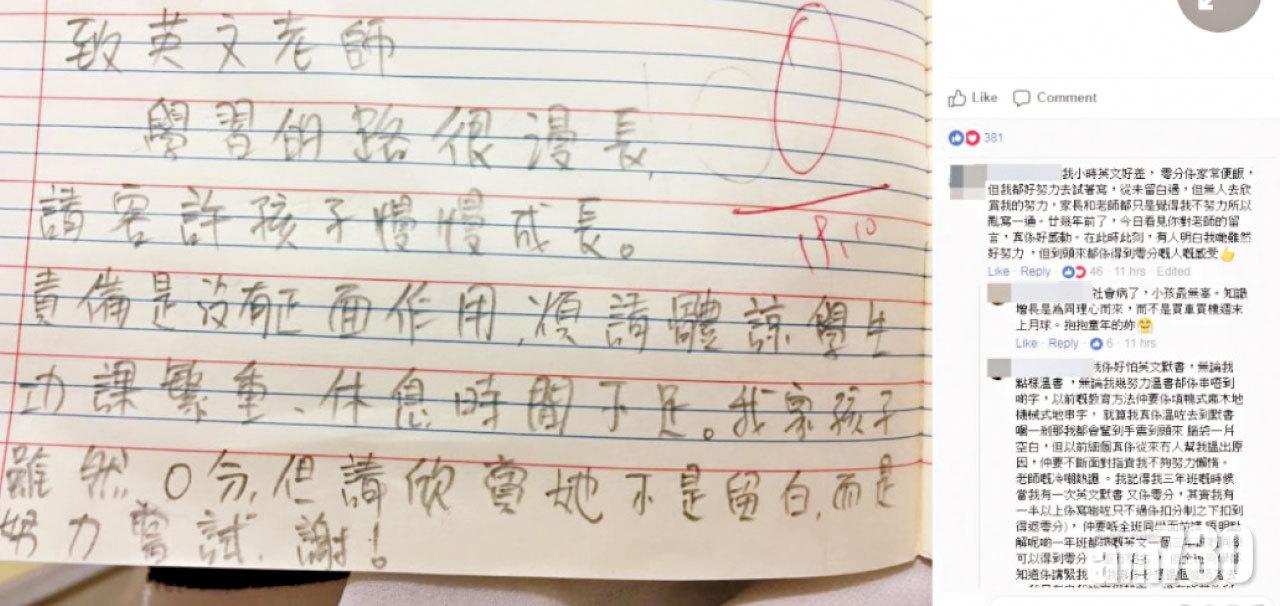 致英文老師
學習的路很漫長,
請容許孩子慢慢成長。
責備是沒有正面作用,煩請體諒學生
功課繁重、休息時間不足。我家孩子
雖然0分,但請欣賞她不是留白,而是
努力嘗試,謝!
0
18/10
Like Comment
381
我小時英文好差,零分係家常便飯,
但我都好努力去試著寫,從未留白過,但無人去欣
賞我的努力,家長和老師都只是覺得我不努力所以
亂寫一通。廿幾年前了,今日看見你對老師的留
言,真係好感動。在此時此刻,有人明白我哋雖然
好努力,但到頭來都係得到零分嘅人嘅感受👍
Like · Reply · 46 · 11 hrs · Edited
社會病了,小孩最無辜。知識
增長是為同理心而來,而不是買車買樓週末
上月球。抱抱童年的妳
Like · Reply · 6 · 11 hrs
我係好怕英文默書,無論我
點樣溫書,無論我幾努力溫書都係串唔到
啲字,以前嘅教育方法仲要係填鴨式麻木地
機械式地串字,就算我真係溫咗去到默書
嗰一剎那我都會驚到手震到頭來 腦袋一片
空白,但以前細個真係從來冇人幫我搵出原
因,仲要不斷面對指責我不夠努力懶惰。
老師嘅冷嘲熱諷。我記得我三年班嘅時候
當我有一次英文默書 又係零分,其實我有
一半以上係寫啱咗只不過係扣分制之下扣到
得返零分),仲要喺全班同學面前
解呢啲一年班都識嘅英文一個
可以得到零分
知道係講緊我
am730